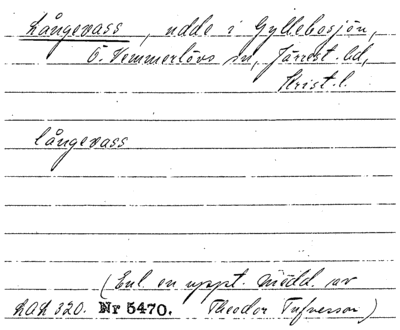 Långevass, udde i Gyllebosjön,
Ö. Vemmerlövs sn, Järrest. hd,
Krist. l.
långevass
(Enl. en uppt. medd. av
LAL 320. Nr 5470. Theodor Tufvesson)